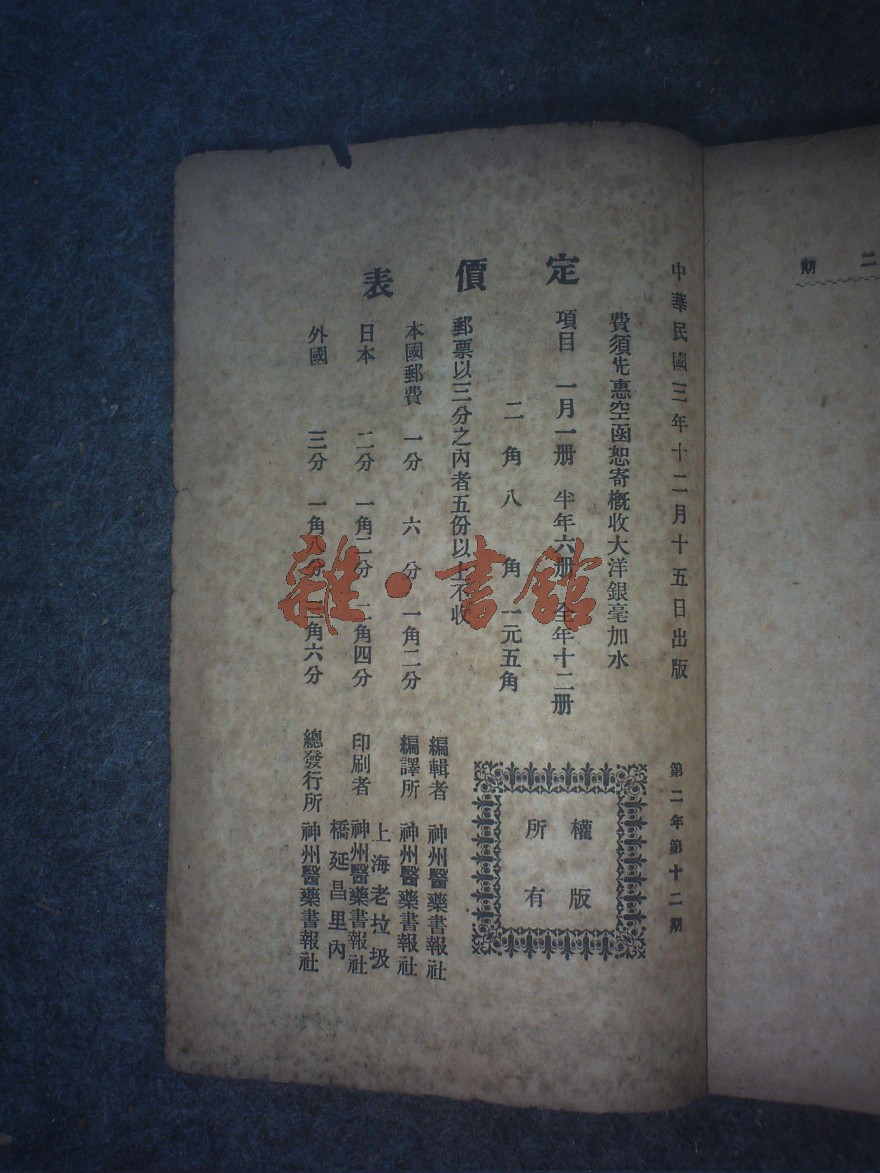 二期
中華民國三年十二月十五日出版 第二年第十二期
定價表
費須先惠空函恕寄概收大洋銀毫加水
項目 一月一册 半年六册 全年十二册
二角 八角 一元五角
郵票以三分之內者五份以上不收
本國郵費 一分 六分 一角二分
日本 二分 一角二分 二角四分
外國 三分 一角八分 三角六分
版權
所有
編輯者 神州醫藥書報社
編譯所 神州醫藥書報社
上海老垃圾
印刷者 神州醫藥書報社
橋延昌里內
總發行所 神州醫藥書報社
雜·書館